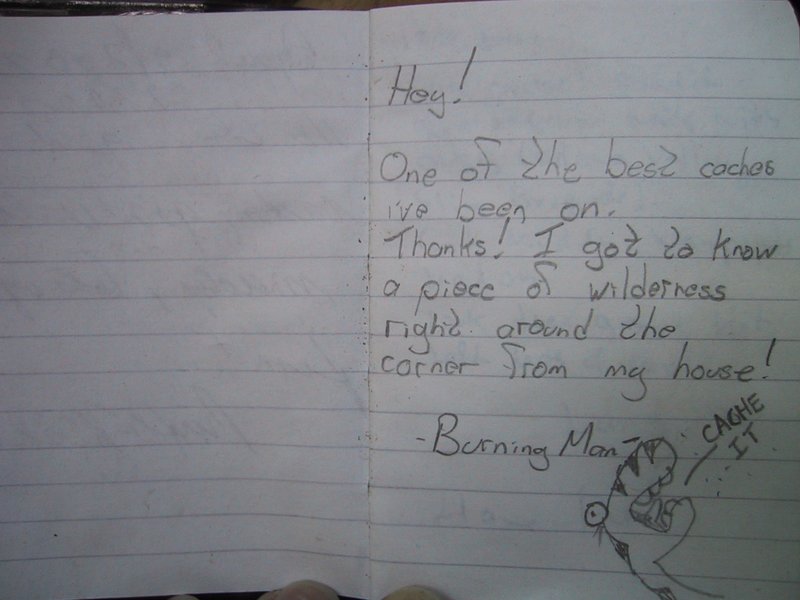 Hey!
One of the best caches
i've been on.
Thanks! I got to know
a piece of wilderness
right around the
corner from my house!
-Burning Man-
CACHE
IT